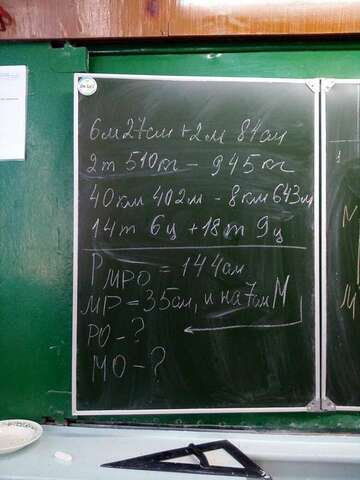 6м27см + 2м 84см
2т 510кг - 945кг
40км 402м - 8км 643м
14т 6ц + 18т 9ц
P MPO = 144см
MP = 35см, и на 7см М
PO - ?
MO - ?